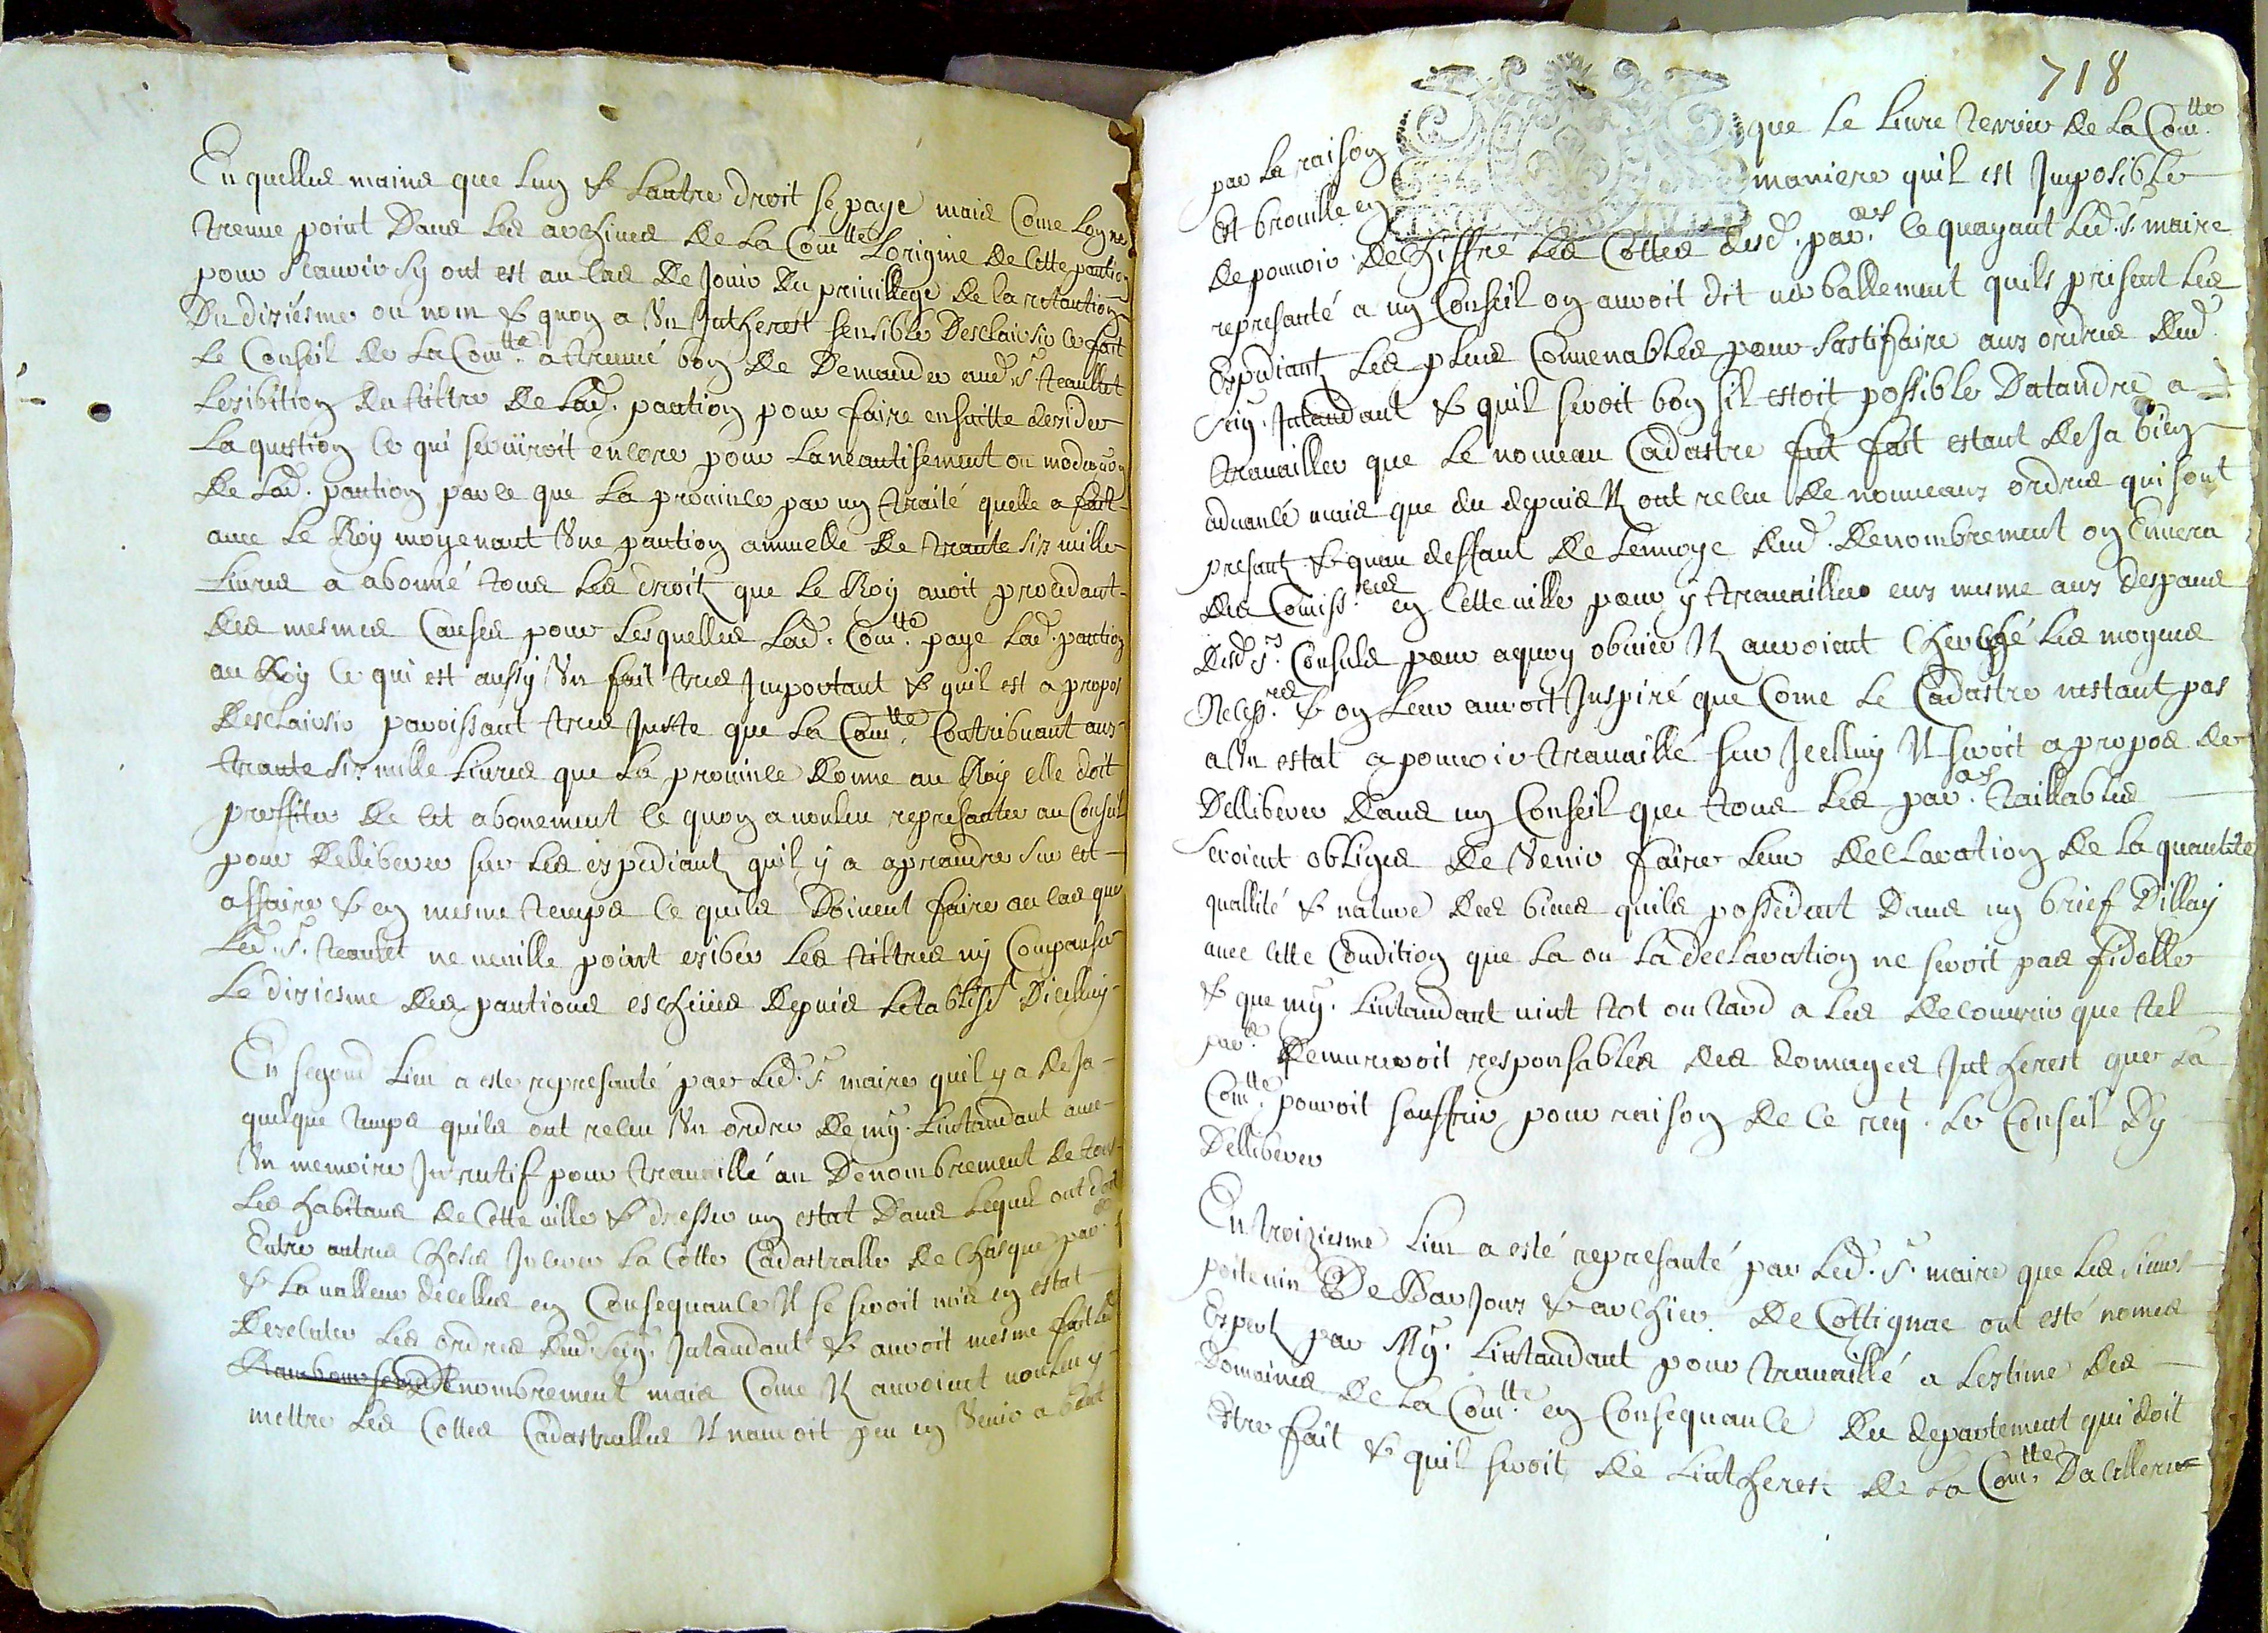 En quelles mains que lun & lautre droit se paye mais Come Lon ne
treuve point Dans les archives de la Comtté Lorigine de Cette pantion
pour scauoir sy ont est au cas de Jouir du priuillege de la retantion
Du diziésme ou non & quon a Vn Jntherest sensible Desclaircir ce fait
Le Conseil de la Comtté a treuué bon de Demander aud. sr
Lexibition du tiltre de lad. pantion pour faire ensuitte desider
La question ce qui seruiroit encore pour laneantisement ou
de lad. pantion parce que la prouince par un traité quelle a fait
auec le Roy moyenant Vne pantion annuelle de trante six mille
Liures a abonné tous les droit que le Roy auoit prouedant
des mesmes Causes pour lesquelles lad. Comtté paye lad. pantion
au Roy ce qui est aussy Vn fait tres Jmportant & quil est a propos
desclaircir paroissant tres Juste que la Comtté Contribuant aux
trante six mille Liures que la prouince donne au Roy elle doit
proffiter de cet abonement ce quon a voulu represanter au Conseil
pour delliberer sur les expediant quil y a aprandre sur cet
affaire & en mesme temps ce quils Doiuent faire au cas que
led. sr. ne ueuille point exiber les tiltres ny Compenser
Le diziesme des pantions escheües depuis letablisst Dicelluy
En segond Lieu a este represanté par led. sr maire quil y a deja
quelque temps quils ont receu Vn ordre de mgr. Lintandant auec
Vn memoire Jnstrutif pour trauaillé au Denombrement de tous
les habitans de Cette uille & dresser un estat Dans lequel ont doit
Entre autres choses Jncerer la Cotte Cadastralle de chasque par.er
& la ualleur dicelles en Consequance Jl se seroit mis en estat
Dexecuter les ordres dud. seigr. Jntandant & auroit mesme fait led.
Denombrement mais Come Jl auroient uoulu y
mettre les Cottes Cadastralles Jl nauroit peu en Venir a bout
718
par la raison que le Liure terrier de la Comtté
Est brouille en maniere quil est Jmposible
de pouuoir dechiffré les Cottes desd. par.ers ce quayant led. sr. maire
represanté a un Conseil on auroit dit uerballement quils prisent les
Expediant les plus Conuenables pour sastifaire aux ordres dud.
seigr. Jntandant & quil seroit bon sil estoit possible Datandre a
trauailler que le nouueau Cadastre fut fait estant deja bien
aduancé mais que du depuis Jl ont receu de nouueaux ordres qui sont
presant & quau deffaut de Lenuoye dud. denombrement on Enuera
des Comiss.res en Cette uille pour y trauailler eux mesme aux despans
desd. srs. Consuls pour aquoy obuier Jl auroient cherché les moyens
Necess.res & on leur auroit Jnspiré que Come le Cadastre nestant pas
a Vn estat a pouuoir trauaillé sur Jcelluy Jl seroit a propos de
Delliberer dans un Conseil que tous les par.ers taillables
seroient obliges de Venir faire leur declaration de la quantité
quallité & nature des biens quils possedent Dans un brief Dellay
auec cette Condition que la ou la declaration ne seroit pas fidelle
& que mgr. Lintandant uint tot ou tard a les decouurir que tel
par.er demureroit responsables des domages Jntherest que la
Comtté pouroit souffrir pour raison de ce reqt. le Conseil Dy
Delliberer
En troiziesme Lieu a esté represanté par led. sr. maire que les sieurs
poiteuin De Barjoux & archier de Cottignac ont esté nomes
Expert par Mgr. Lintandant pour trauaillé a lestime des
Domaines de la Comtté en Consequance du departement qui doit
Estre fait & quil seroit de Lintherest de la Comtté